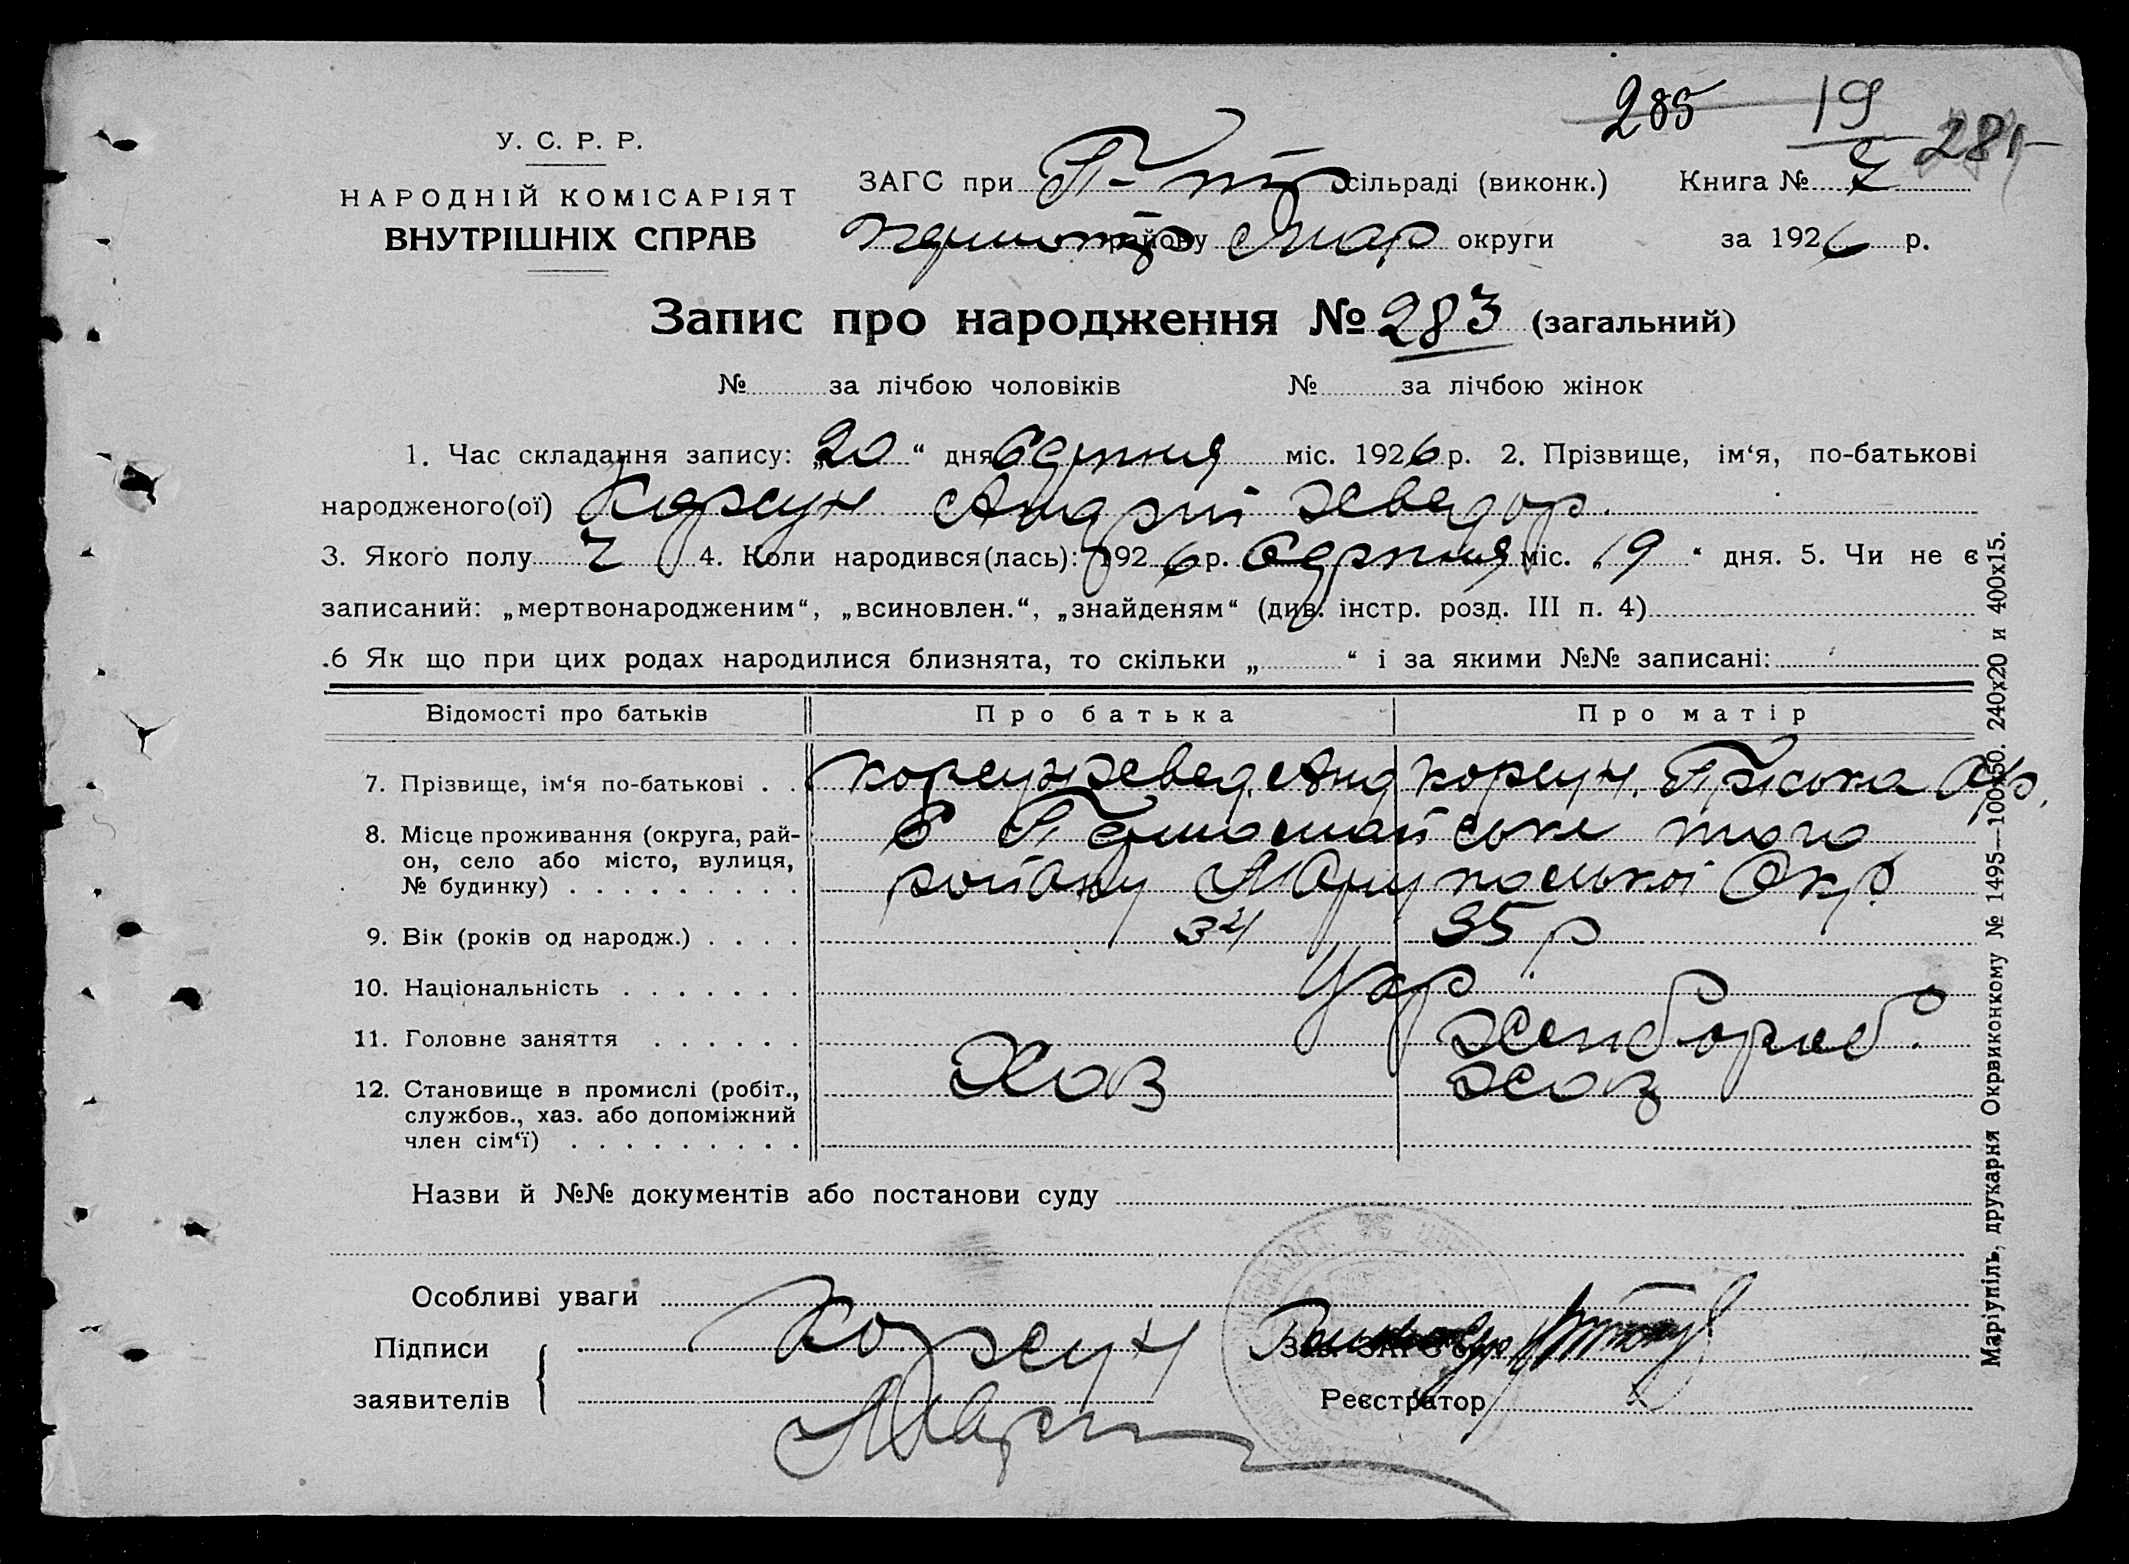 285 19 281
У. С. Р. Р.
НАРОДНІЙ КОМІСАРІЯТ
ВНУТРІШНІХ СПРАВ
ЗАГС при сільраді (виконк.) Книга №
району Мар округи за 1926 р.
Запис про народження № 283 (загальний)
№ за лічбою чоловіків № за лічбою жінок
1. Час складання запису: „20“ дня серпня міс. 1926 р. 2. Прізвище, ім‘я, по-батькові
народженого(ої) Корсун Андрій Хведор.
3. Якого полу ч 4. Коли народився(лась): 1926 р. серпня міс. 19 “ дня. 5. Чи не є
записаний: „мертвонародженим“, „всиновлен.“, „знайденям“ (див. інстр. розд. III п. 4)
.6 Як що при цих родах народилися близнята, то скільки „ “ і за якими №№ записані:
Відомості про батьків Про батька Про матір
7. Прізвище, ім‘я по-батькові . . Корсун Хвед. Анд Корсун. Пріська
8. Місце проживання (округа, рай-
он, село або місто, вулиця,
№ будинку) . . . . . . . . .
с Першомайське того
району Маріупольської Окр
9. Вік (років од народж.) . . . . 34 35 р
10. Національність . . . . . . . Укр
11. Головне заняття . . . . . . Хлібороб.
12. Становище в промислі (робіт.,
службов., хаз. або допоміжний
член сім‘ї) . . . . . . . . .
Хоз хоз
Назви й №№ документів або постанови суду
Особливі уваги
Підписи
заявителів
Корсун
Зав. ЗАГС‘ом
Реєстратор
Маріупіль, друкарня Окрвиконкому № 1495—100х50. 240х20 и 400х15.